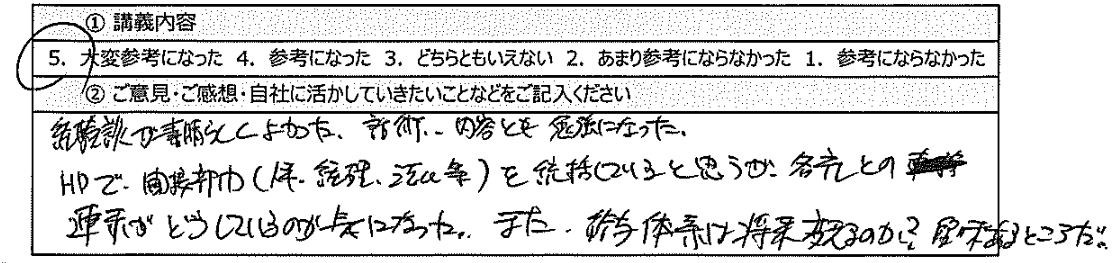 ① 講義内容
5. 大変参考になった 4. 参考になった 3. どちらともいえない 2. あまり参考にならなかった 1. 参考にならなかった
② ご意見・ご感想・自社に活かしていきたいことなどをご記入ください
経験談が素晴らしくよかった、話術、内容とも勉強になった。
HDで、間接部巾(人事、経理、法ム等)を統括していると思うが、各売との
連系がどうしているのか気になった。また、給与体系は将来変えるのか?興味あるところだ。